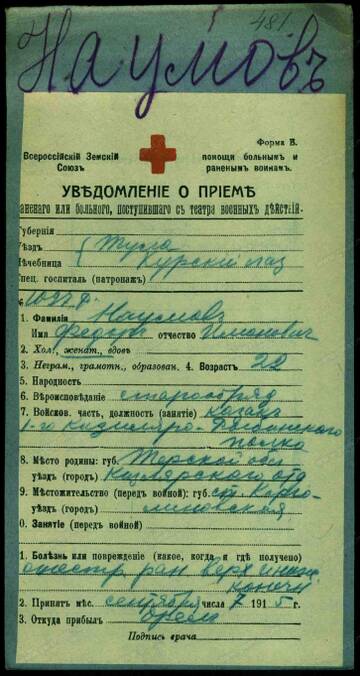 481
Наумовъ
Форма В.
Всероссійскій Земскій
Союзъ
помощи больнымъ и
раненымъ воинамъ.
УВѢДОМЛЕНІЕ О ПРІЕМѢ
раненаго или больного, поступившаго съ театра военныхъ дѣйствій.
Губернія
ѣздъ Тула
Лѣчебница Курскій лаз
Спец. госпиталь (патронажъ)
1. Фамилія Наумовъ
Имя Федотъ отчество
2. Хол., женат., вдовъ
3. Неграм., грамотн., образован. 4. Возрастъ 22
5. Народность
6. Вѣроисповѣданіе старообряд
7. Войсков. часть, должность (занятіе) казакъ
1-го Кизляро-Гребенского
полка
8. Мѣсто родины: губ. Терской обл
уѣздъ (городъ) Кизлярскаго отд
9. Мѣстожительство (передъ войной): губ. ст.
уѣздъ (городъ)
0. Занятіе (передъ войной)
1. Болѣзнь или поврежденіе (какое, когда и гдѣ получено)
огнестр ран верх
конечн
2. Принятъ мѣс. сентября числа 7 1915 г.
3. Откуда прибылъ Орелъ
Подпись врача